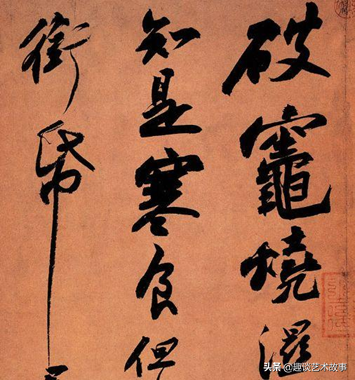 破竈燒濕
知是寒食但
銜帋
头条 @趣谈艺术故事